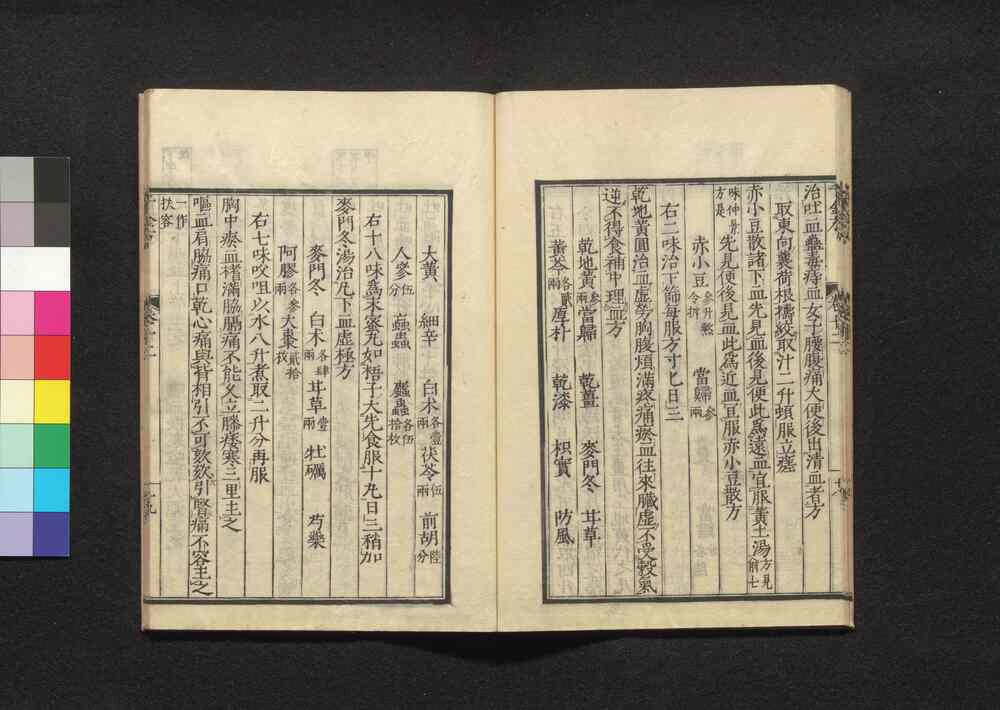 治吐血蠱毒痔血女子腰腹痛大便後出清血者方
取東向蘘荷根擣絞取汁二升頓服立瘥
赤小豆散諸下血先見血後見便此爲遠血宜服黄土湯方見前七
味仲景方是先見便後見血此爲近血宜服赤小豆散方
赤小豆參升熬令拆 當歸參兩
右二味治下篩每服方寸匕日三
乾地黄圓治血虚勞胸腹煩滿疼痛瘀血往來臟虚不受穀氣
逆不得食補中理血方
乾地黄參兩當歸 乾薑 麥門冬 甘草
黄芩各貳兩厚朴 乾漆 枳實 防風
大黄 細辛 白术各壹兩茯苓伍兩 前胡陸分
人參伍分 蝱蟲 䗪蟲各伍拾枚
右十八味爲末蜜丸如梧子大先食服十丸日三稍加
麥門冬湯治凡下血虚極方
麥門冬 白术各肆兩甘草壹兩 牡礪 芍藥
阿膠各參兩大棗貳拾枚
右七味㕮咀以水八升煮取二升分再服
胸中瘀血榰滿脇膈痛不能久立膝痿寒三里主之
嘔血肩脇痛口乾心痛與背相引不可欬欬引腎痛不容主之
一作扶容